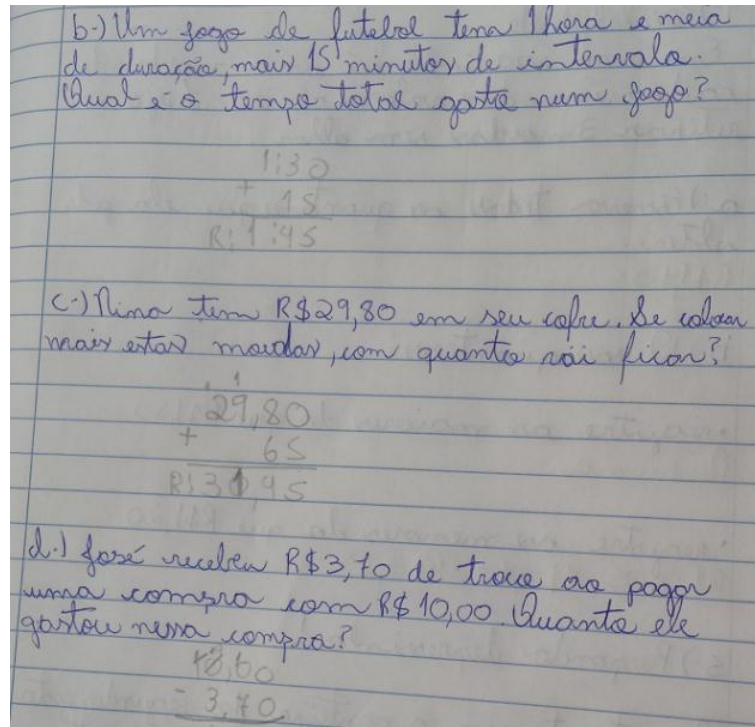 b-) Um jogo de futebol tem 1 hora e meia
de duração, mais 15 minutos de intervalo.
Qual é o tempo total gasto num jogo?
1:30
+ 15
R: 1:45
c-) Nina tem R$29,80 em seu cofre. Se colocar
mais estas moedas, com quanto vai ficar?
1 1
29,80
+ 65
R: 30,45
d-) José recebeu R$3,70 de troco ao pagar
uma compra com R$10,00. Quanto ele
gastou nessa compra?
- 3,70